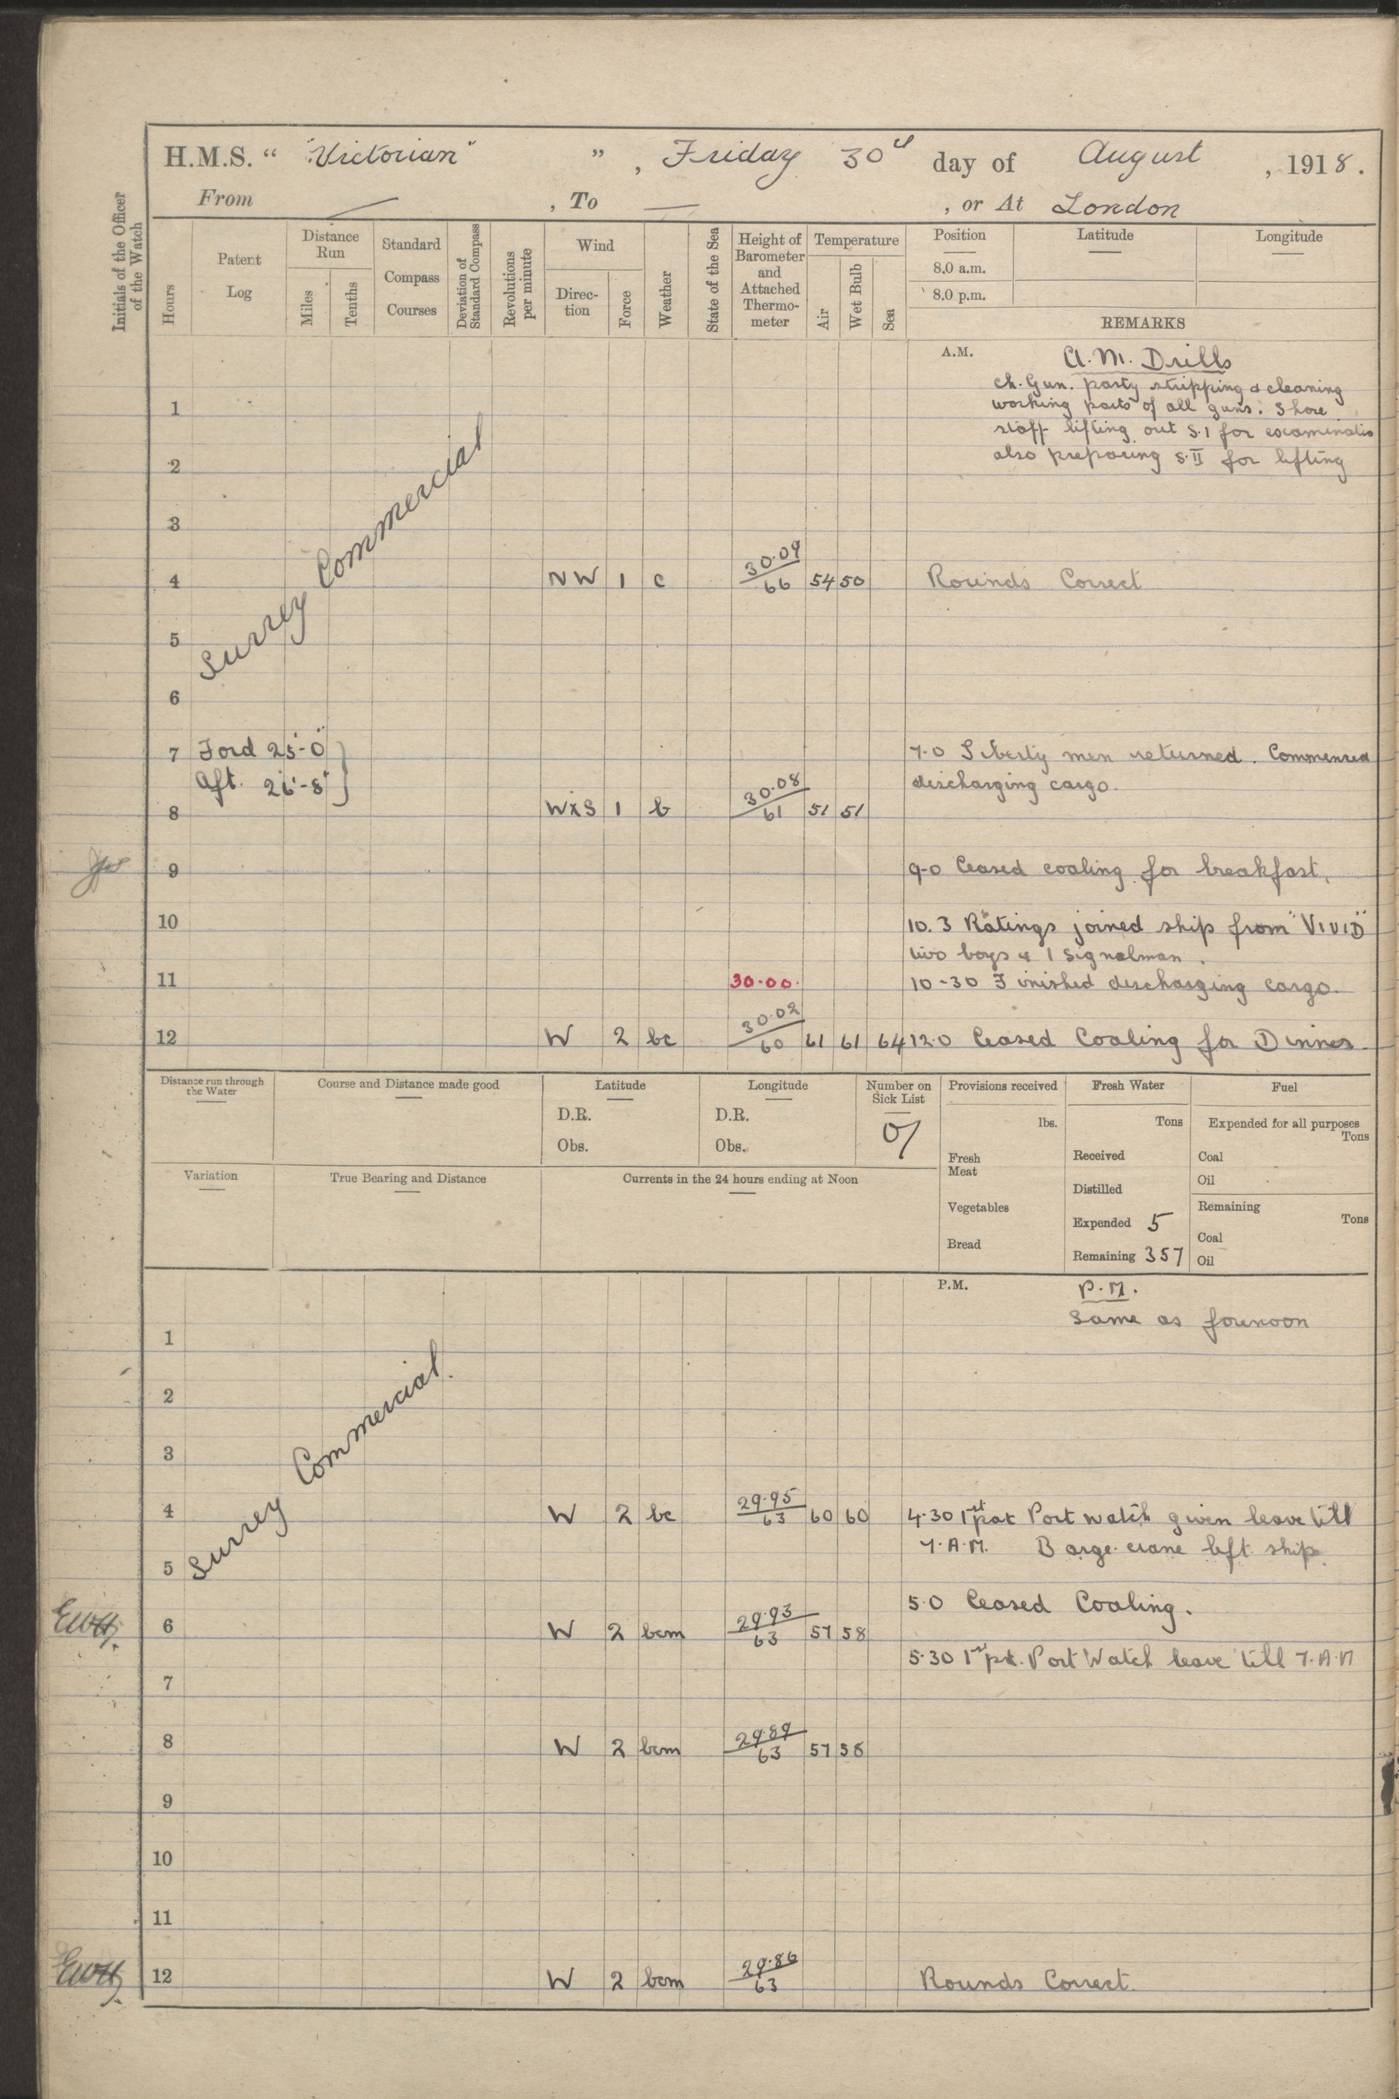 H.M.S. " "Victorian" " , Friday 30th day of August , 1918.
From — , To — , or At London
Initials of the Officer of the Watch
Hours
Patent Log
Distance Run
Miles
Tenths
Standard Compass Courses
Deviation of Standard Compass
Revolutions per minute
Wind
Direc-tion
Force
Weather
State of the Sea
Height of Barometer and Attached Thermo-meter
Temperature
Air
Wet Bulb
Sea
Position
Latitude
Longitude
8.0 a.m.
8.0 p.m.
REMARKS
A.M. A.M. Drills
Ch. Gun. party stripping & cleaning
working parts of all guns. Shore
staff lifting out S.I for examination
also preparing S.II for lifting
Surrey Commercial
1
2
3
4 NW 1 c 30.09/66 54 50 Rounds Correct
5
6
7 Ford 25'-0" 7.0 Liberty men returned. Commenced
Aft. 26'-8" discharging cargo.
8 WxS 1 b 30.08/61 51 51
9 9-0 Ceased coaling for breakfast.
10 10. 3 Ratings joined ship from "VIVID"
two boys & 1 Signalman.
11 30.00 10-30 Finished discharging cargo.
12 W 2 bc 30.02/60 61 61 64 12.0 Ceased Coaling for Dinner
Distance run through the Water
Course and Distance made good
Latitude
D.R.
Obs.
Longitude
D.R.
Obs.
Number on Sick List
Provisions received
lbs.
Fresh Meat
Vegetables
Bread
Fresh Water
Tons
Received
Distilled
Expended 5
Remaining 357
Fuel
Expended for all purposes
Tons
Coal
Oil
Remaining
Tons
Coal
Oil
Variation
True Bearing and Distance
Currents in the 24 hours ending at Noon
P.M. P.M.
Same as forenoon
Surrey Commercial.
1
2
3
4 W 2 bc 29.95/63 60 60 4.30 1st part Port watch given leave till
7.A.M. Barge crane left ship.
5
5.0 Ceased Coaling.
6 W 2 bcm 29.93/63 57 58
5.30 1st pt. Port Watch leave till 7.A.M
7
8 W 2 bcm 29.89/63 57 58
9
10
11
12 W 2 bcm 29.86/63 Rounds Correct.